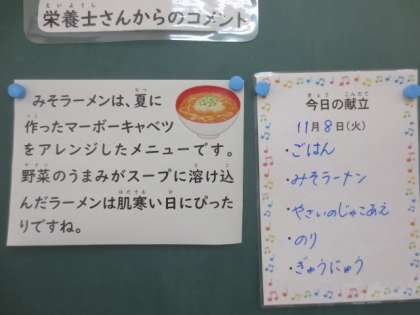 えいようし
栄養士さんからのコメント
みそラーメンは、夏に
作ったマーボーキャベツ
をアレンジしたメニューです。
野菜のうまみがスープに溶け込
んだラーメンは肌寒い日にぴった
りですね。
きょう こんだて
今日の献立
11月8日(火)
・ごはん
・みそラーメン
・やさいのじゃこあえ
・のり
・ぎゅうにゅう